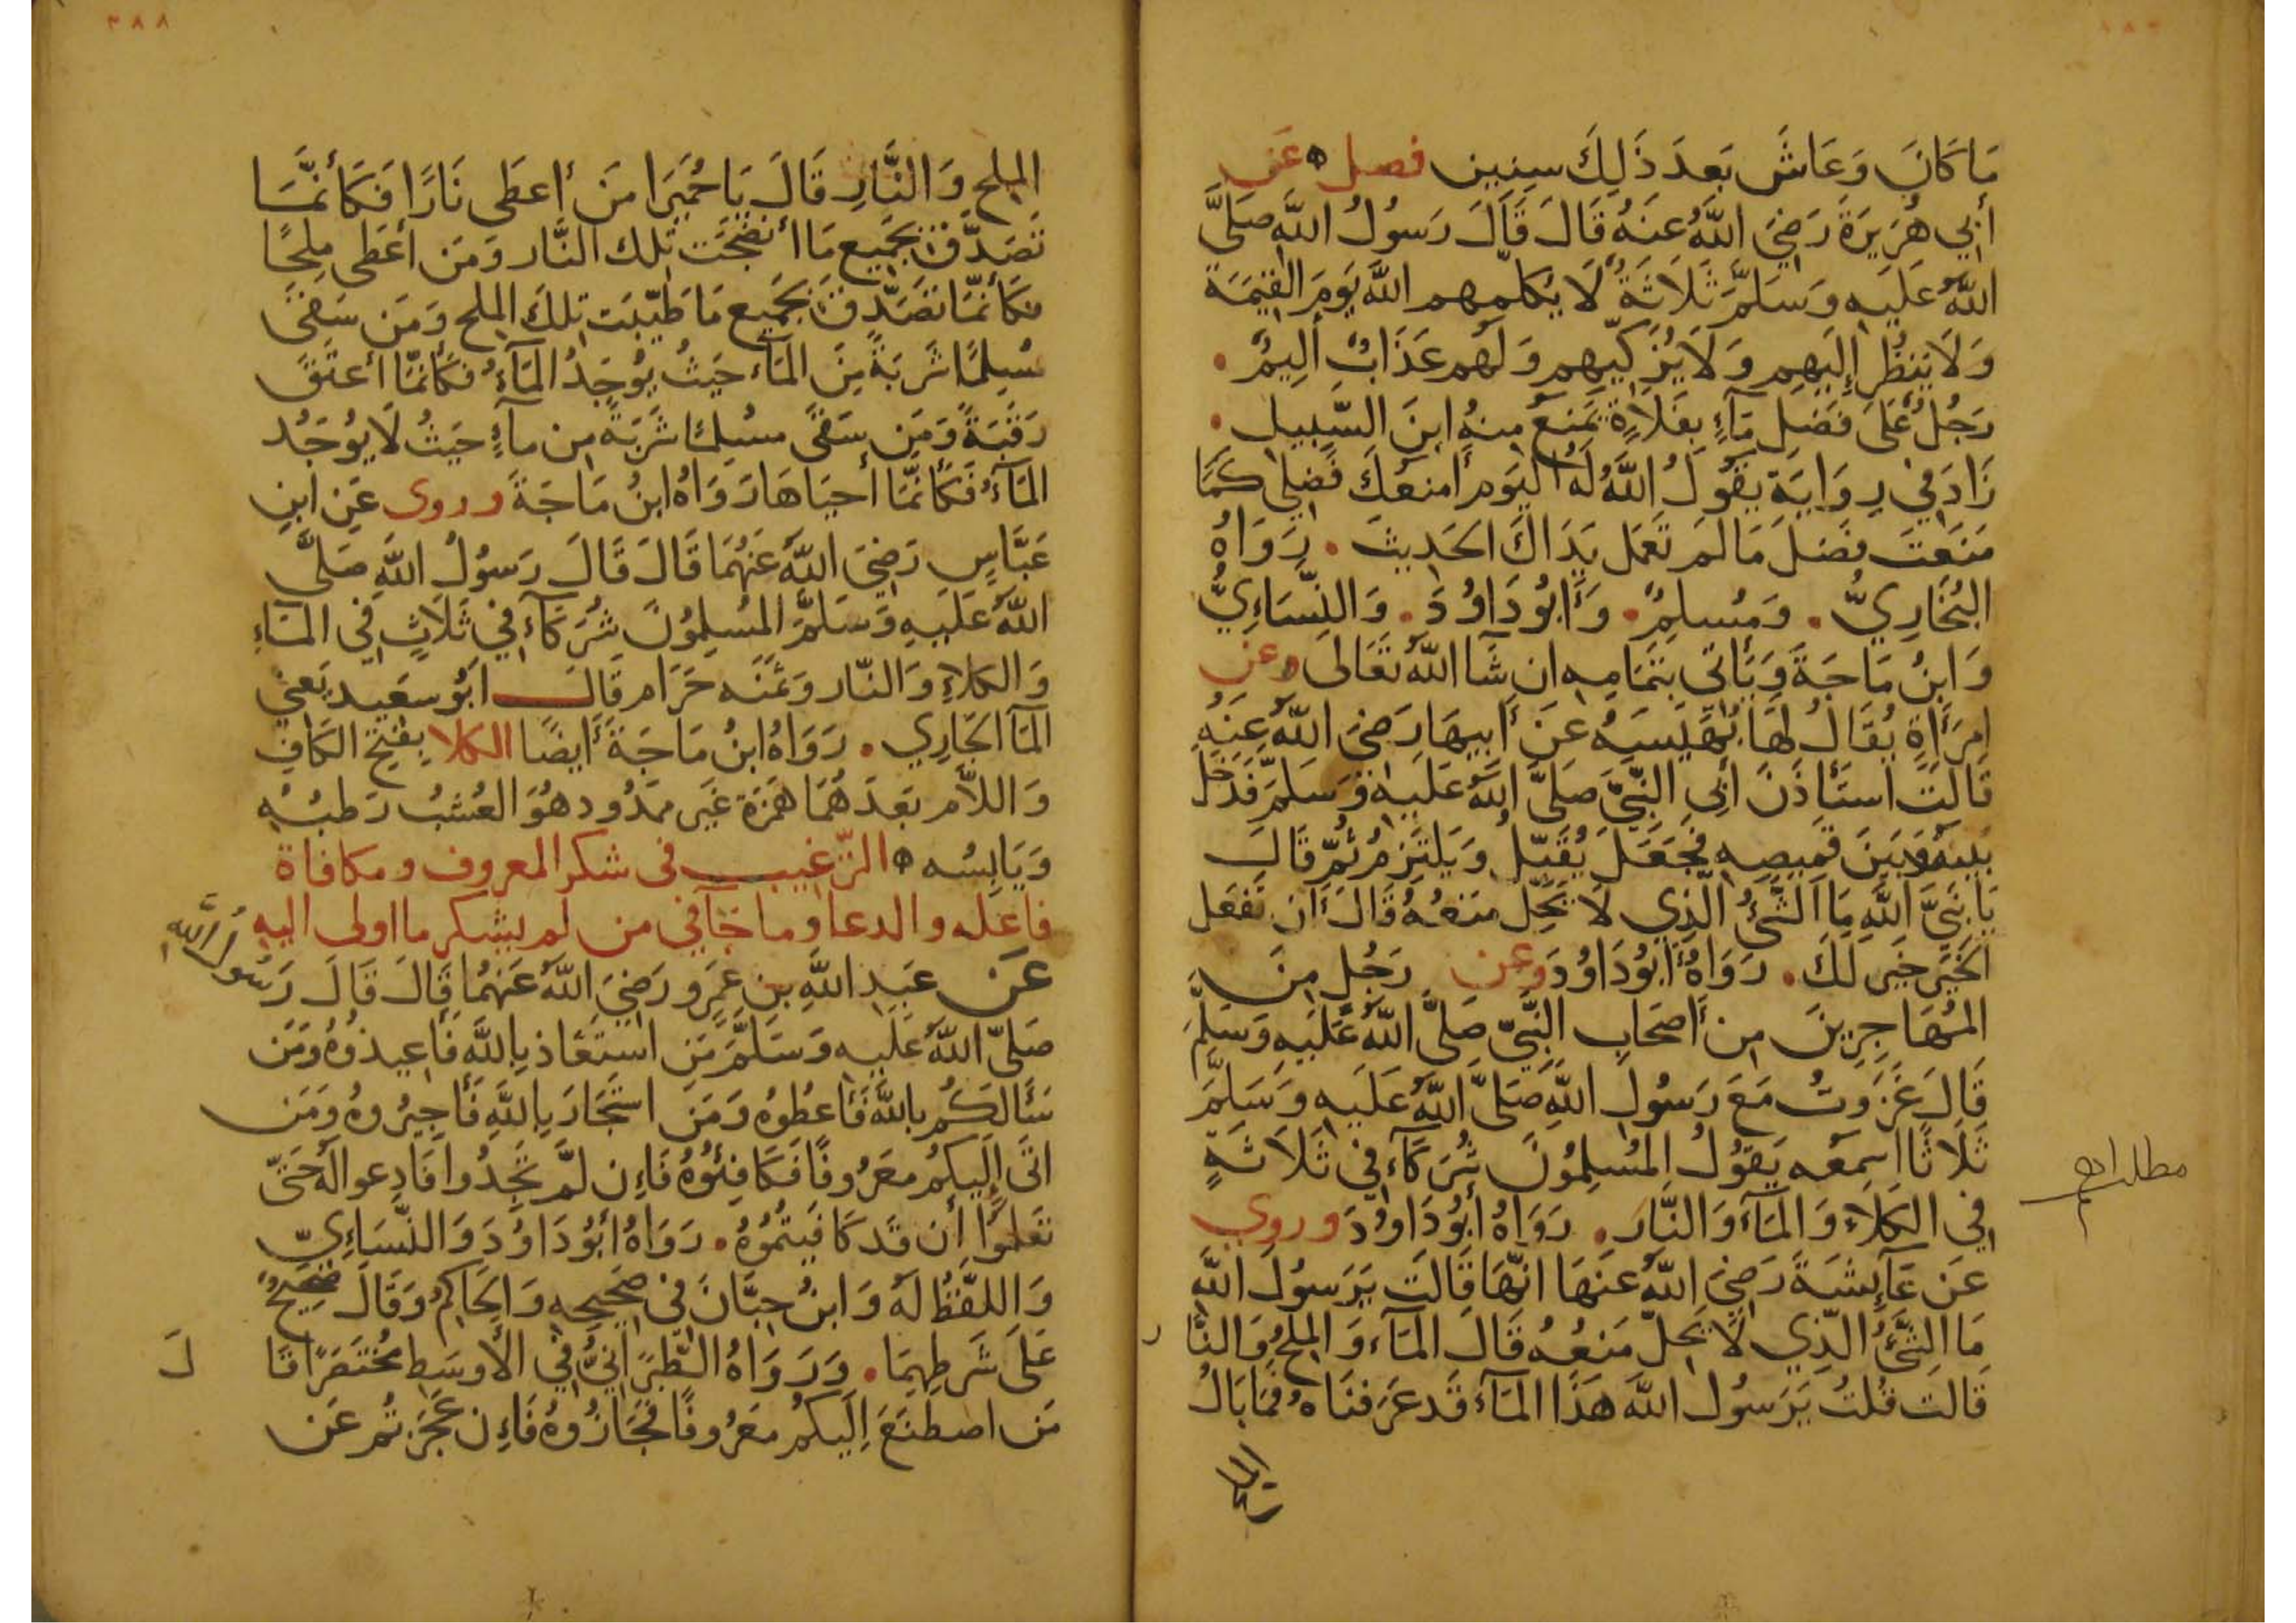 مَا كَانَ وَعَاشَ بَعدَ ذَلِكَ سِنِين فصل عَن
أَبِي هُرَيرَةَ رَضِيَ اللَّهُ عَنهُ قَالَ قَالَ رَسُولُ اللَّهِ صَلَّى
اللَّهُ عَلَيهِ وَسَلَّمَ ثَلَاثَةٌ لَا يُكَلِّمُهم اللَّهُ يَومَ القِيمَة
وَلَا يَنظُر إِلَيهِم وَلَا يُزَكِّيهِم وَلَهُم عَذَابٌ أَلِيمٌ .
رَجُلٌ عَلَى فَضلِ مَآءٍ بِفَلَاةٍ يَمنَعُ مِنهُ ابنَ السَّبِيلِ .
زَادَ فِي رِوَايَةٍ يَقُولُ اللَّهُ لَهُ اليَوم أَمنَعُكَ فَضلِي كَمَا
مَنَعتَ فَضلَ مَا لَم تَعمَل يَدَاكَ الحَدِيثَ . رَوَاهُ
البُخَارِيُّ . وَمُسلِمٌ . وَأَبُو دَاوُدَ . وَالنَّسَاءِيُّ
وَابنُ مَاجَةَ وَيَأتِي بِتَمَامِهِ ان شَا اللَّهُ تَعَالَى وعن
امرَأَةٍ يُقَالُ لَهَا بُهَيسَهُ عَن أَبِيهَا رَضِيَ اللَّهُ عَنهُ
قَالَت استَأذَنَ أَبِي النَّبِيَّ صَلَّى اللَّهُ عَلَيهِ وَسَلَّمَ فَدَخَل
بَينَهُ وَبَينَ قَمِيصِهِ فَجَعَلَ يُقَبِّلُ وَيَلتَزِمُ ثُمَّ قَالَ
يَا نَبِيَّ اللَّهِ مَا الشَّيْءُ الَّذِي لَا يَحِلُّ مَنعُهُ قَالَ أَن تَفعَل
الخَيرَ خَير لَكَ . رَوَاهُ أَبُو دَاوُدَ وعن رَجُلٍ مِنَ
المُهَاجِرِينَ مِن أَصحَابِ النَّبِيِّ صَلَّى اللَّهُ عَلَيهِ وَسَلَّمَ
قَالَ غَزَوتُ مَعَ رَسُولِ اللَّهِ صَلَّى اللَّهُ عَلَيهِ وَسَلَّمَ
ثَلَاثًا اسمَعه يَقُولُ المُسلِمُونَ شُرَكَآء فِي ثَلَاثَةٍ
فِي الكَلَاءِ وَالمَآءِ وَالنَّارِ . رَوَاهُ أَبُو دَاوُدَ وروي
عَن عَآئِشَةَ رَضِيَ اللَّهُ عَنهَا انَّهَا قَالَت يَرَسُولَ اللَّه
مَا الشَّيْءُ الَّذِي لَا يَحِلُّ مَنعُهُ قَالَ المَآء وَالمِلحُ وَالنَّا ر
قَالَت قُلتُ يَرَسُولَ اللَّه هَذَا المَآء قَد عَرَفنَاهُ فَمَا بَالُ
المِلحِ وَالنَّارِ قَالَ يَا حُمَيرَا مَن أَعطَى نَارًا فَكَأَنَّمَا
تَصَدَّقَ بِجَمِيعِ مَا أَنضَجَت تِلك النَّار وَمَن أَعطَى مِلحًا
فَكَأَنَّمَا تَصَدَّقَ بِجَمِيعِ مَا طَيَّبَت تِلكَ المِلح وَمَن سَقَى
مُسلِمًا شَربَةً مِنَ المَآء حَيثُ يُوجَدُ المَآءُ فَكَأَنَّمَا أَعتَقَ
رَقَبَةً وَمَن سَقَى مُسلِمًا شَربَةً مِن مآءٍ حَيثُ لَا يُوجَدُ
المَآءُ فَكَأَنَّمَا أَحيَاهَا رَوَاهُ ابنُ مَاجَةَ وروى عَن ابنِ
عَبَّاسٍ رَضِيَ اللَّهُ عَنهُمَا قَالَ قَالَ رَسُولُ اللَّهِ صَلَّى
اللَّهُ عَلَيهِ وَسَلَّمَ المُسلِمُونَ شُرَكَآء فِي ثَلَاثٍ فِي المَاءِ
وَالكَلاءِ وَالنَّار وَثَمَنَه حَرَام قَالَ ابُو سَعِيد يَعنِي
المَآ الجَارِي . رَوَاهُ ابنُ مَاجَةَ أَيضًا الكلا بِفَتحِ الكَافِ
وَاللَّام بَعدَهُمَا هَمزَة غَير مَمدُود هُوَ العُشبُ رَطبُهُ
وَيَابِسُه الترغيب في شكر المعروف ومكافاة
فاعله والدعا وما جآفي من لم يشكر ما اولى اليه
عَن عَبدِ اللَّهِ بنِ عَمرٍو رَضِيَ اللَّهُ عَنهُمَا قَالَ قَالَ رَسُولُ اللَّهِ
صَلَّى اللَّهُ عَلَيهِ وَسَلَّمَ مَن استَعَاذ بِاللَّهِ فَأَعِيذُوهُ وَمَن
سَأَلَكُم بِاللَّهِ فَأَعطُوهُ وَمَن استَجَارَ بِاللَّهِ فَأَجِيرُوهُ وَمَن
اتَى إِلَيكُم مَعرُوفًا فَكَافِئُوهُ فَإِن لَم تَجِدُوا فَادعُوا لَهُ حَتَّى
تَعلَمُوا أَن قَد كَافَيتُمُوهُ . رَوَاهُ أَبُو دَاوُدَ وَالنَّسَاءِيِّ
وَاللَّفظُ لَهُ وَابنُ حِبَّانَ فِي صَحِيحِهِ وَالحَاكِمُ وَقَالَ صَحِيحٌ
عَلَى شَرطِهِمَا . وَرَوَاهُ الطَّبَرَانِيُّ فِي الأَوسَطِ مُختَصَرًا قَا لَ
مَن اصطَنَعَ إِلَيكُم مَعرُوفًا فَجَازُوهُ فَإِن عَجَزتُم عَن